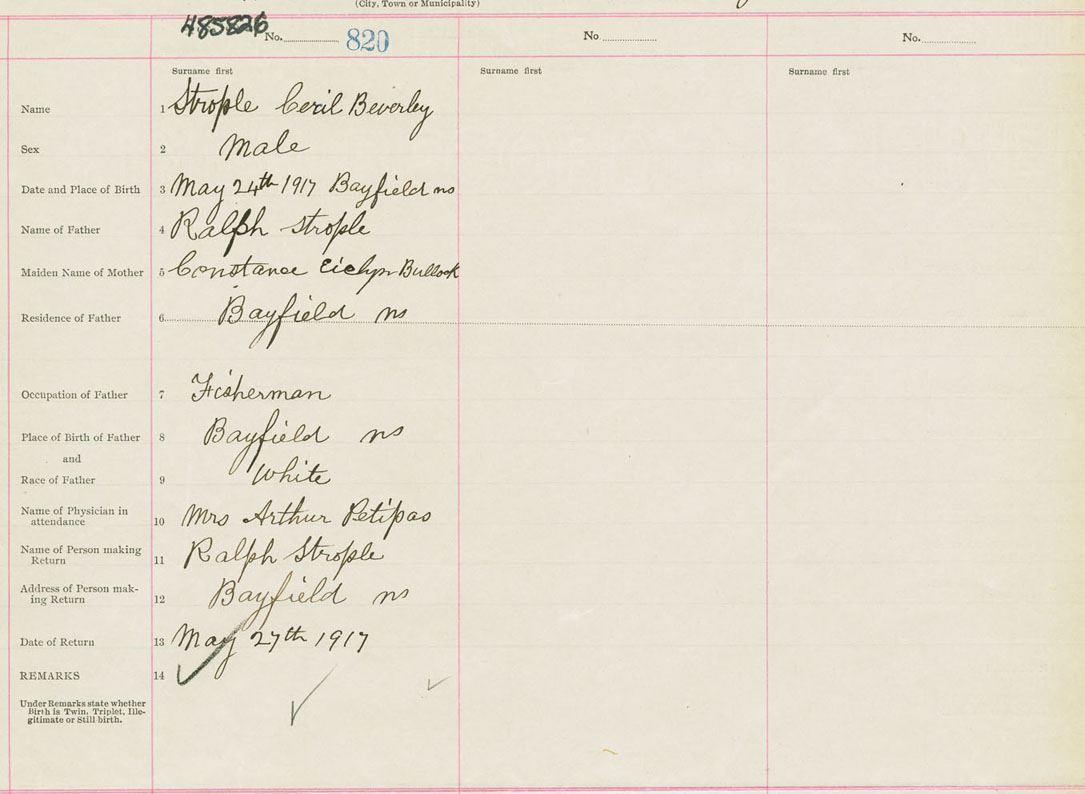 (City, Town or Municipality)
485826
No. 820
No.
No.
Surname first
Surname first
Surname first
Name 1 Strople Cecil Beverley
Sex 2 Male
Date and Place of Birth 3 May 24th 1917 Bayfield ns
Name of Father 4 Ralph Strople
Maiden Name of Mother 5 Constance Bullock
Residence of Father 6 Bayfield ns
Occupation of Father 7 Fisherman
Place of Birth of Father 8 Bayfield ns
and
Race of Father 9 White
Name of Physician in
attendance 10 Mrs Arthur Petipas
Name of Person making
Return 11 Ralph Strople
Address of Person mak-
ing Return 12 Bayfield ns
Date of Return 13 May 27th 1917
REMARKS 14
Under Remarks state whether
Birth is Twin, Triplet, Ille-
gitimate or Still-birth.